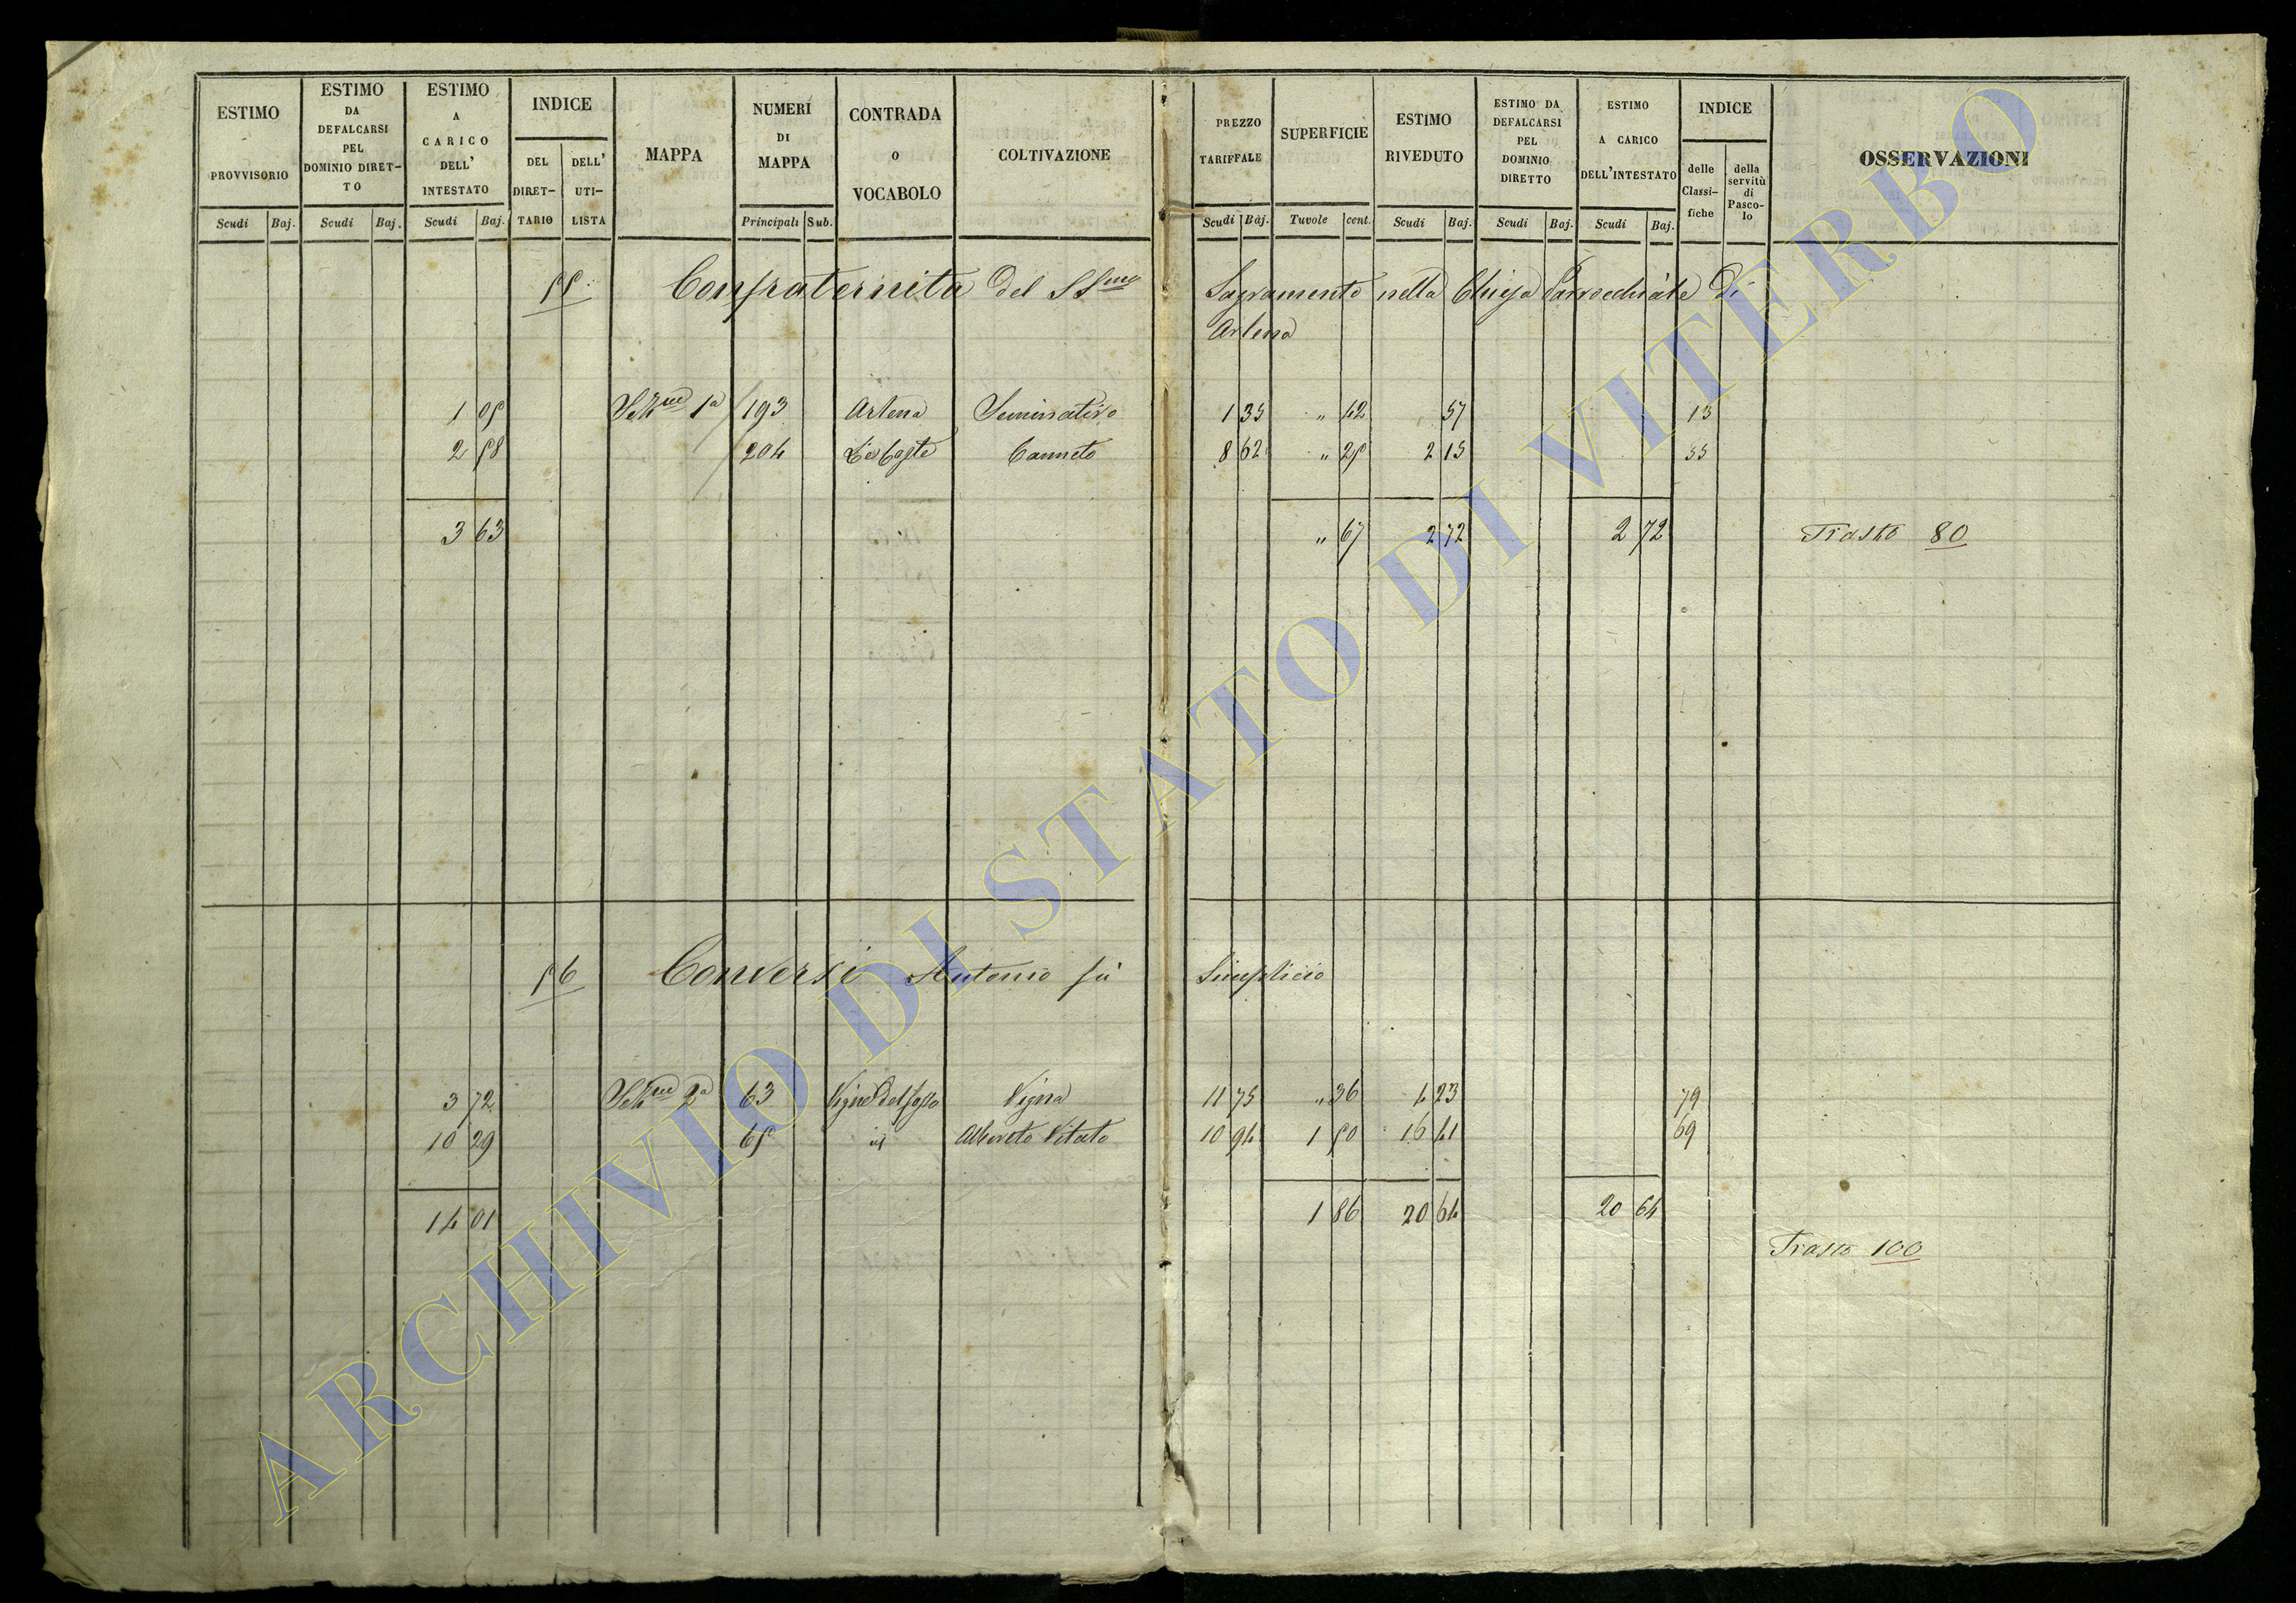 ESTIMO PROVVISORIO
Scudi Baj.
ESTIMO
DA
DEFALCARSI
PEL
DOMINIO DIRET-
TO
Scudi Baj.
ESTIMO
A
CARICO
DELL'
INTESTATO
Scudi Baj.
INDICE
DEL
DIRET-
TARIO
DELL'
UTI-
LISTA
MAPPA
NUMERI
DI
MAPPA
Principali Sub.
CONTRADA
O
VOCABOLO
COLTIVAZIONE
PREZZO
TARIFFALE
Scudi Baj.
SUPERFICIE
Tavole cent.
ESTIMO
RIVEDUTO
Scudi Baj.
ESTIMO DA
DEFALCARSI
PEL
DOMINIO
DIRETTO
Scudi Baj.
ESTIMO
A CARICO
DELL'INTESTATO
Scudi Baj.
INDICE
delle
Classi-
fiche
della
servitù
di
Pasco-
lo
OSSERVAZIONI
55. Confraternita del SSmo Sagramento nella Chiesa Parrocchiale di
Artena
1 05 Sezne 1a 193 Artena Seminativo 1 35 " 42 57 13
2 58 204 Le Coste Canneto 8 62 " 25 2 15 55
3 63 " 67 2 72 2 72 Trasto 80
56 Conversi Antonio fù Simplicio
3 72 Sezne 2a 63 Vigne del fosso Vigna 11 75 " 36 4 23 79
10 29 65 id Alboreto Vitato 10 94 1 50 16 41 69
14 01 1 86 20 64 20 64
Trasto 100
ARCHIVIO DI STATO DI VITERBO